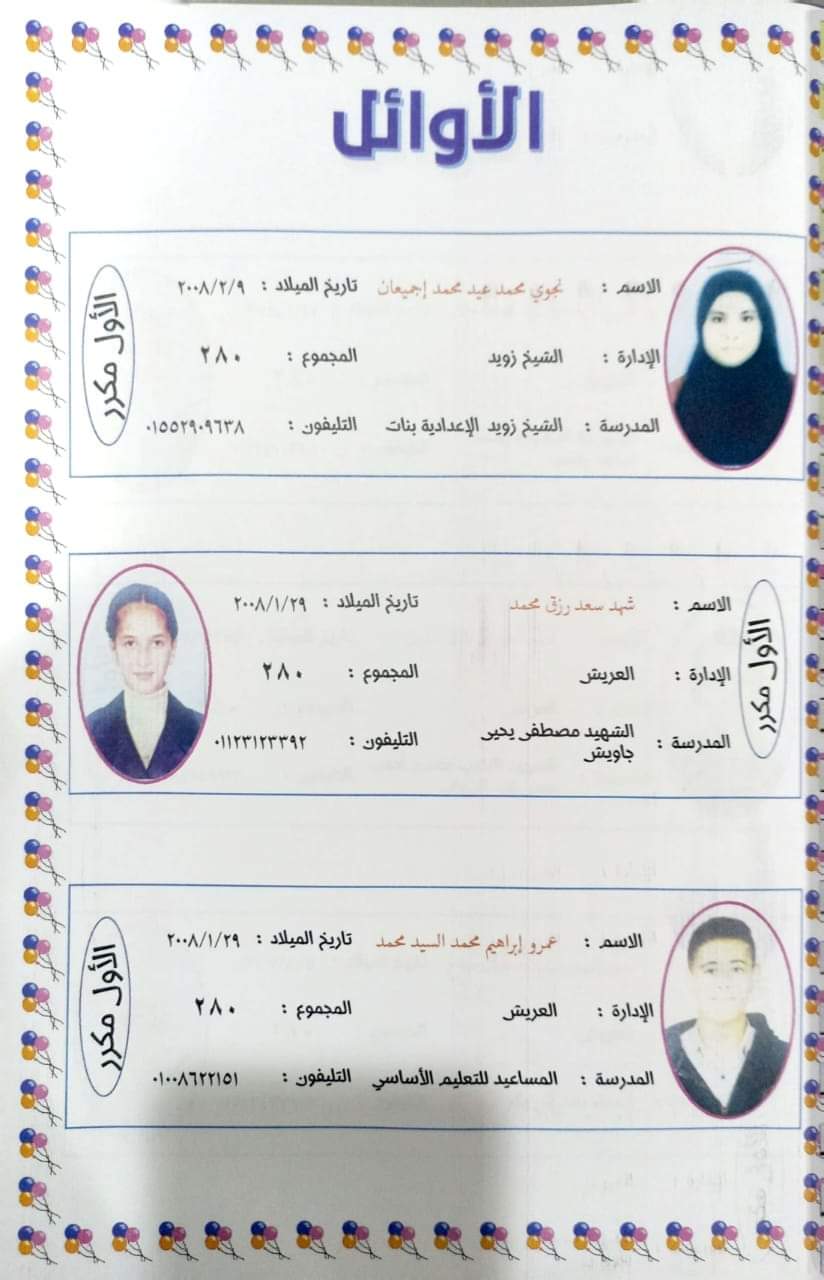 الأوائل
الاسم : نجوي محمد عيد محمد إجميعان تاريخ الميلاد : ٢٠٠٨/٢/٩
الإدارة : الشيخ زويد المجموع : ٢٨٠
المدرسة : الشيخ زويد الإعدادية بنات التليفون : ٠١٥٥٢٩٠٩٦٣٨
الأول مكرر
الأول مكرر
الاسم : شهد سعد رزق محمد تاريخ الميلاد : ٢٠٠٨/١/٢٩
الإدارة : العريش المجموع : ٢٨٠
المدرسة : الشهيد مصطفى يحيى التليفون : ٠١١٢٣١٢٣٣٩٢
جاويش
الاسم : عمرو إبراهيم محمد السيد محمد تاريخ الميلاد : ٢٠٠٨/١/٢٩
الإدارة : العريش المجموع : ٢٨٠
المدرسة : المساعيد للتعليم الأساسي التليفون : ٠١٠٠٨٦٢٢١٥١
الأول مكرر